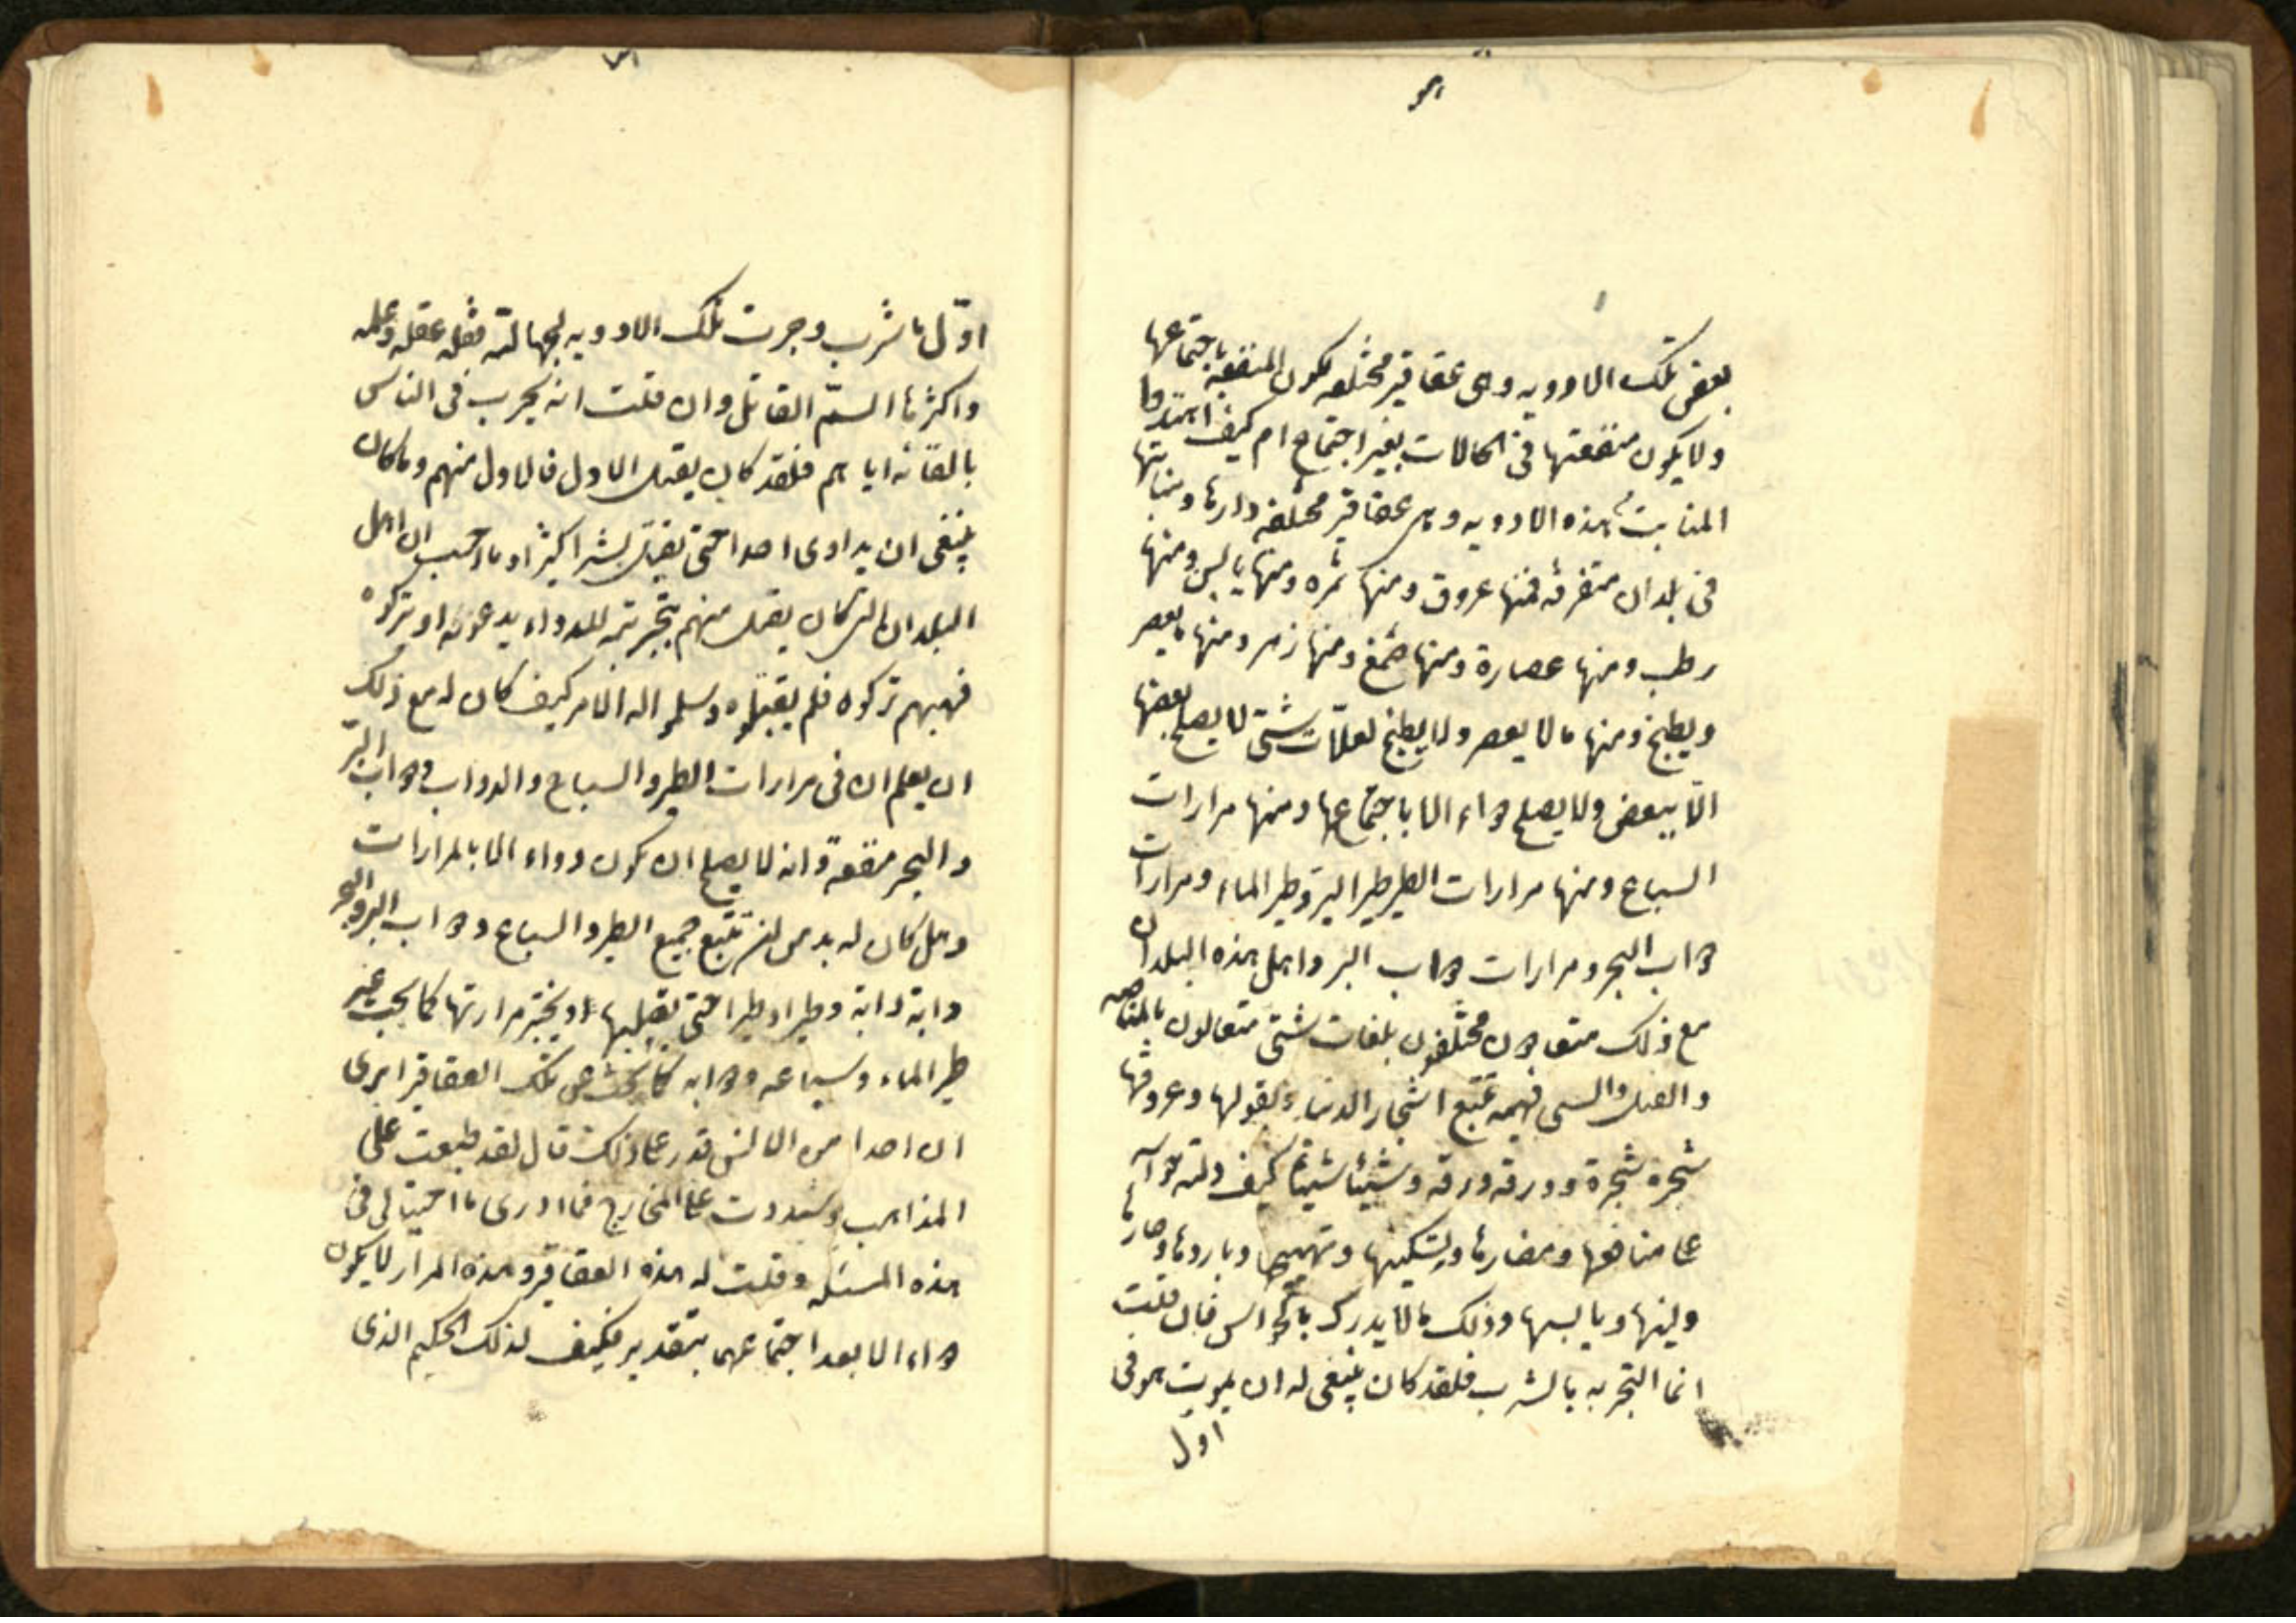 بعض تلك الادويه وهى عقاقير مختلفه يكون المنفعه باجتماعها
ولا يكون منفعتها فى الحالات بغير اجتماع ام كيف اهتدوا
المنابت هذه الادويه وهى عقاقير مختلفه دارها ومنابتها
فى بلدان متفرقه فمنها عروق ومنها ثمره ومنها يابس ومنها
رطب ومنها عصارة ومنها صمغ ومنها زهر ومنها ما يعصر
ويطبخ ومنها ما لا يعصر ولا يطبخ لعلّات شتى لا يصلح بعضها
الّا ببعض ولا يصلح دواء الا باجتماعها ومنها مرارات
السباع ومنها مرارات الطير طير البر وطير الماء ومرارات
دواب البحر ومرارات دواب البر واهل هذه البلدان
مع ذلك متعادون مختلفون بلغات شتى متغالبون بالمناصبه
والقتل والسبى فهبه تتبع اشجار الدنيا وبقولها وعروقها
شجرة شجرة وورقه ورقه وشيئا شيئا كيف دلته حواسه
على منافعها ومضارها وتسكينها وتهييجها وباردها وحارها
ولينها ويابسها وذلك ما لا يدرك بالحواس فان قلت
انما التجربه بالشرب فلقد كان ينبغى له ان يموت هو فى
اول
اوّل ما شرب وجرب تلك الادويه لجهالته وقله عقله وعلمه
واكثرها السمّ القاتل وان قلت انه يجرب فى الناس
بالقائه اياهم فلقد كان يقتل الاول فالاول منهم وما كان
ينبغى ان يداوى احدا حتى يقتل بشرا كثيرا وما احسب ان اهل
البلدان التى كان يقتل منهم بتجربته للدواء يدعونه او تركوه
فهبهم تركوه فلم يقتلوه وسلموا اله الامر كيف كان له مع ذلك
ان يعلم ان فى مرارات الطير والسباع والدواب دواب البرّ
والبحر منفعة وانه لا يصلح ان يكون دواء الا بالمرارات
وهل كان له بد من ان يتتبع جميع الطير والسباع ودواب البر والبحر
دابة دابة وطيرا وطيرا حتى يقتلها او يختبر مرارتها كما بحث عن
طير الماء وسباعه ودوابه كما بحث عن تلك العقاقير اترى
ان احدا من الانس قدر على ذلك قال لقد طبعت على
المذاهب وسددت على المخارج فما ادرى ما احتيالى فى
هذه المسئله وقلت له هذه العقاقير وهذه المرار لا يكون
دواء الا بعد اجتماعهما بتقدير فكيف لذلك الحكيم الذى